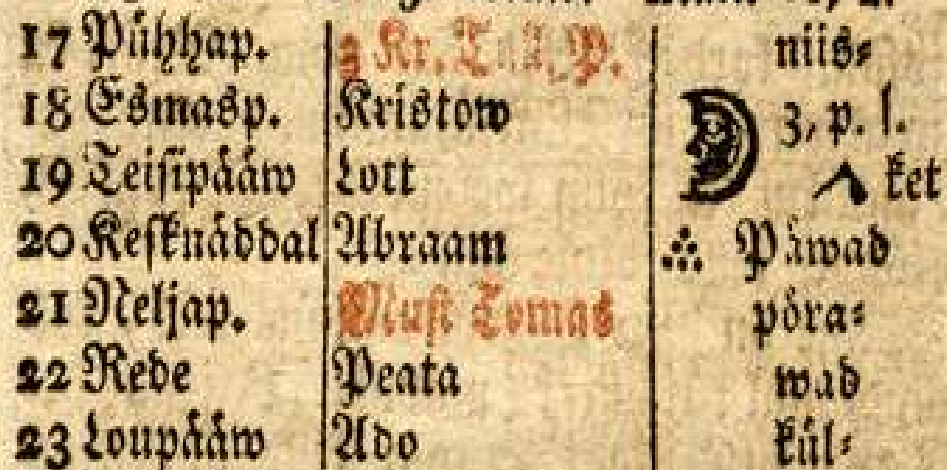 17 Pühhap. 3 Kr. Tul. P. niis⸗
18 Esmasp. Kristow 3, p. l.
19 Teisipääw Lott ket
20 Kesknäddal Abraam Päwad
21 Neljap. Must Tomas pöra⸗
22 Rede Peata wad
23 Loupääw Ado kül⸗